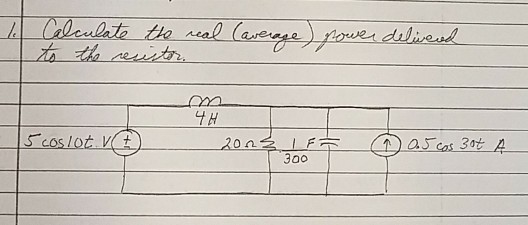 1. Calculate the real (average) power delivered
to the resistor.
4H
5 cos10t V
20Ω
1/300 F
0.5 cos 30t A